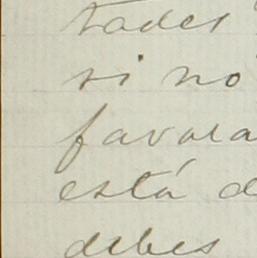 tades
si no
favora
está d
debes